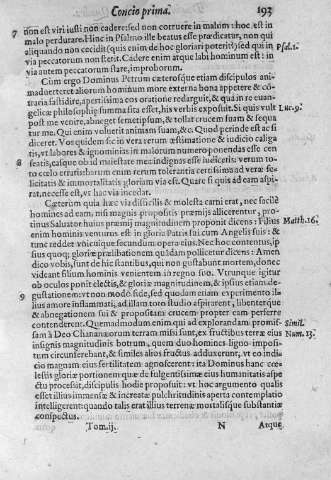 Concio prima. 193
7 non est viri iusti non cadere: sed non corruere in malum: hoc est in
malo perdurare. Hinc in Psalmo ille beatus esse prædicatur, non qui
aliquando non cecidit (quis enim de hoc gloriari poterit) sed qui in Psal.1.
via peccatorum non stetit. Cadere enim atque labi hominum est: in
via autem peccatorum stare, improborum.
Cum ergo Dominus Petrum cæterosque etiam discipulos ani-
maduerteret aliorum hominum more externa bona appetere & cõ-
traria fastidire, apertissima eos oratione redarguit, & qua in re euan-
gelicæ philosophiæ summa sita esset, his verbis exposuit. Si quis vult Luc.9.
post me venire, abneget semetipsum, & tollat crucem suam & sequa
tur me. Qui enim voluerit animam suam, &c. Quod perinde est ac si
diceret. Vos quidem si in vera rerum æstimatione & iudicio caliga
tis, vt labores & ignominias in malorum numero ponendas esse cen
8 seatis, easque ob id maiestate mea indignas esse iudicetis: verum to-
to cœlo erratis: harum enim rerum tolerantia certissima ad veræ fe-
licitatis & immortalitatis gloriam via est. Quare si quis ad eam aspi-
rat, necesse est, vt hac via incedat.
Cæterum quia hæc via difficilis & molesta carni erat, nec facilè
homines ad eam, nisi magnis propositis præmijs allicerentur, pro-
tinus Saluator huius præmij magnitudinem proponit dicens: Filius Matth.16.
enim hominis venturus est in gloria Patris sui cum Angelis suis: &
tunc reddet vnicuique secundum opera eius. Nec hoc contentus, ip
sius quoq; gloriæ prælibationem quãdam pollicetur dicens: Amen
dico vobis, sunt de hic stantibus, qui non gustabunt mortem, donec
videant filium hominis venientem in regno suo. Vtrunque igitur
ob oculos ponit electis, & gloriæ magnitudinem, & ipsius etiam de-
gustationem: vt non modò fide, sed quodam etiam experimento il-
9 lius amore inflammati, ad illam toto studio aspirarent, libenterque
& abnegationem sui & propositam crucem propter eam perferre
contenderent. Quemadmodum enim qui ad explorandam promis- Simil.
sam à Deo Chananæorum terram missi sunt, ex fructibus terræ eius Num.13.
insignis magnitudinis botrum, quem duo homines ligno imposi-
tum circunferebant, & similes alios fructus adduxerunt, vt eo indi-
cio magnam eius fertilitatem agnoscerent: ita Dominus hanc cœ-
lestis gloriæ portionem quæ de fulgentissimæ eius humanitatis aspe
ctu processit, discipulis hodie proposuit: vt hoc argumento qualis
esset illius immensæ & increatæ pulchritudinis aperta contemplatio
intelligerent: quando talis erat illius terrenæ mortalisque substantiæ
conspectus.
Tom.ij. N Atque